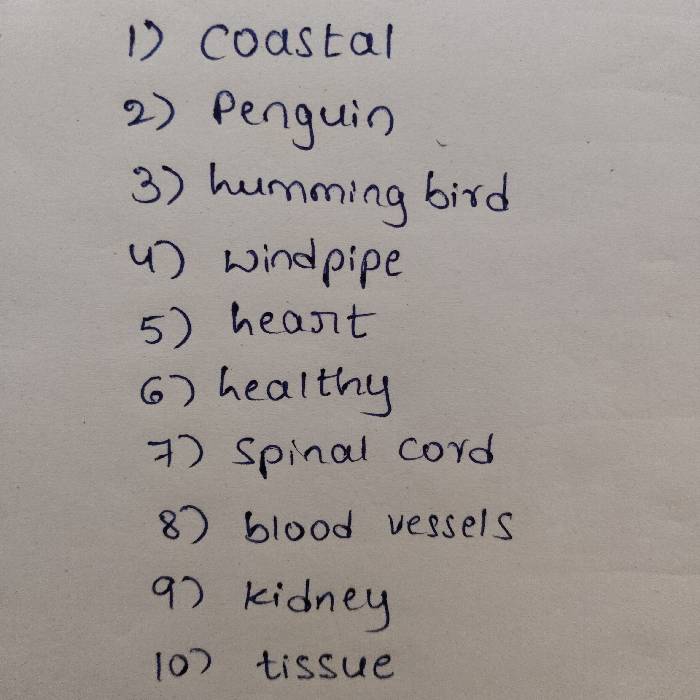 1) Coastal
2) Penguin
3) humming bird
4) windpipe
5) heart
6) healthy
7) spinal cord
8) blood vessels
9) kidney
10) tissue